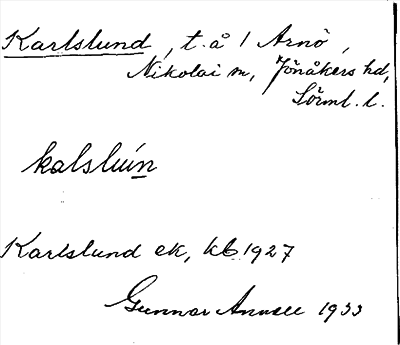 Karlslund, t. å 1 Arnö,
Nikolai sn, Jönåkers hd,
Sörml. l.
kalslúin
Karlslund ek, kb 1927
Gunnar 1933